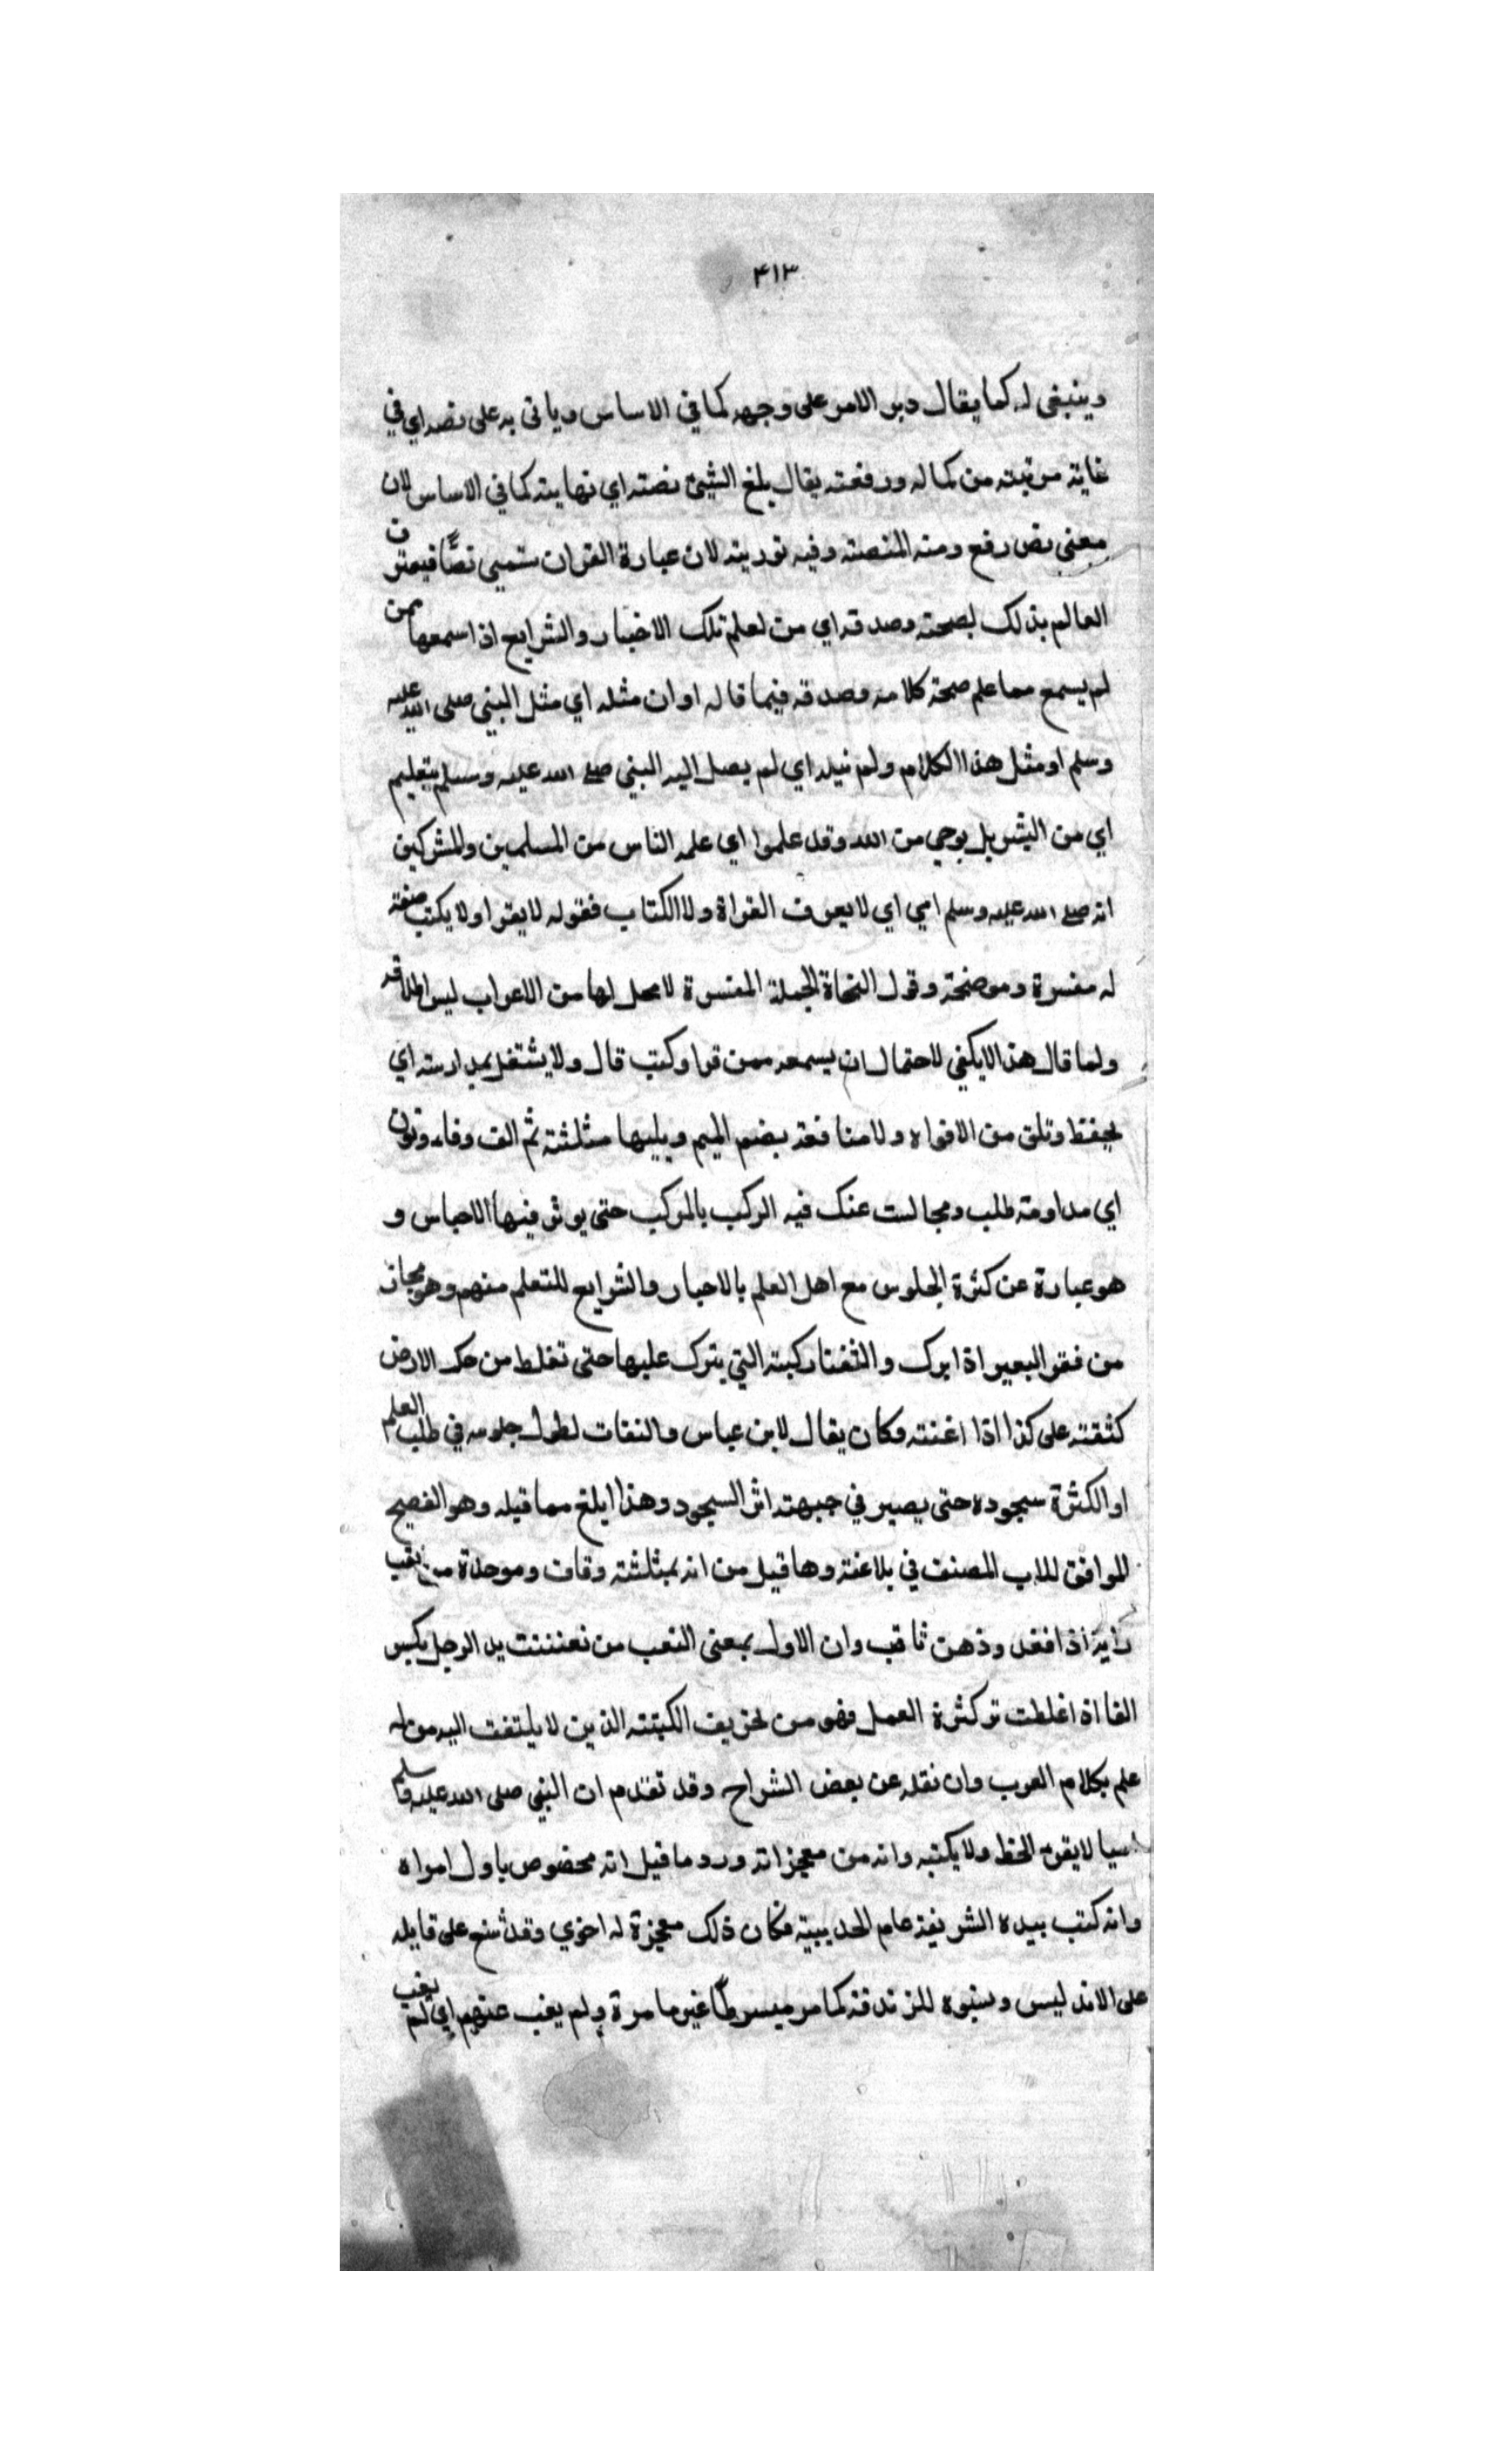 ٤١٣
وينبغى له كما يقال دبر الامر على وجهه كما في الاساس وياتى به على نصه اي في
غاية مرتبته من كماله ورفعته يقال بلغ الشيئ نصته اي نهايته كما في الاساس لان
معنى نص رفع ومنه المنصته وفيه تورية لان عبارة القران ستميي نصًّا فيعترف
العالم بذلك لصحته وصدقه اي من لعلم تلك الاخبار والشرايع اذا سمعها ممن
لم يسمع مما علم صحة كلامه وصدقه فيما قاله او ان مثله اي مثل البنى صلى الله عليه
وسلم او مثل هذا الكلام ولم نيله اي لم يصل اليه البنى صلى الله عليه وسلم بتعليم
اي من البشر بل بوحي من الله وقد علموا اي علمه الناس من المسلمين والمشركين
انه صلى الله عليه وسلم امي اي لا يعرف القراة ولا الكتاب فقوله لا يقرا ولا يكتب صفة
له مفسرة وموضحة وقول النحاة الجملة المفسرة لا محل لها من الاعراب ليس اطلاقه
ولما قال هذا لا يكفي لاحتمال ان يسمعه ممن قرا وكتب قال ولا يشتغل بمدارسته اي
بحفظ وتلق من الافواه ولا مثافنة بضم الميم ويليها مثلثة ثم الف وفاء ونون
اي مداومة طلب ومجالست عنك فيه الركب بالركب حتى يوثر فيها الاحباس و
هو عبارة عن كثرة الجلوس مع اهل العلم بالاحبار والشرايع للتعلم منهم وهو مجاز
من فقر البعير اذا برك والثفنا ركبته التي يترك عليها حتى تغلط من حك الارض
كثقته على كذا اذا اغنته وكان يقال لابن عباس والنفات لطول جلوسه في طلب العلم
او الكثرة سجوده حتى يصير في جبهته اثر السجود وهذا ابلغ مما قبله وهو الفصيح
الموافق للاب المصنف في بلاغته وها قيل من انه بمثلثة وقاف وموحدة من نقب
رايه اذا فغد وذهن ثاقب وان الاول بمعنى التعب من نعنننت يد الرجل بكسر
الفا اذا غلطت تو كثرة العمل فهو من تحريف الكتبته الذين لا يلتفت اليه من له
علم بكلام العرب وان نقله عن بعض الشراح وقد تقدم ان النبي صلى الله عليه وسلم
اسيا لا يقرء الخط ولا يكتبه وانه من معجزاته ورد ما قيل انه مخصوص باول امواه
وانه كتب بيده الشريفة عام الحديبية فكان ذلك معجزة له اخري وقد شنع على قايله
على الاند ليس ونسبوه للزندقة كما مر ميسرطًا غيرما مرة ولم يغب عنهم اي لم يغب